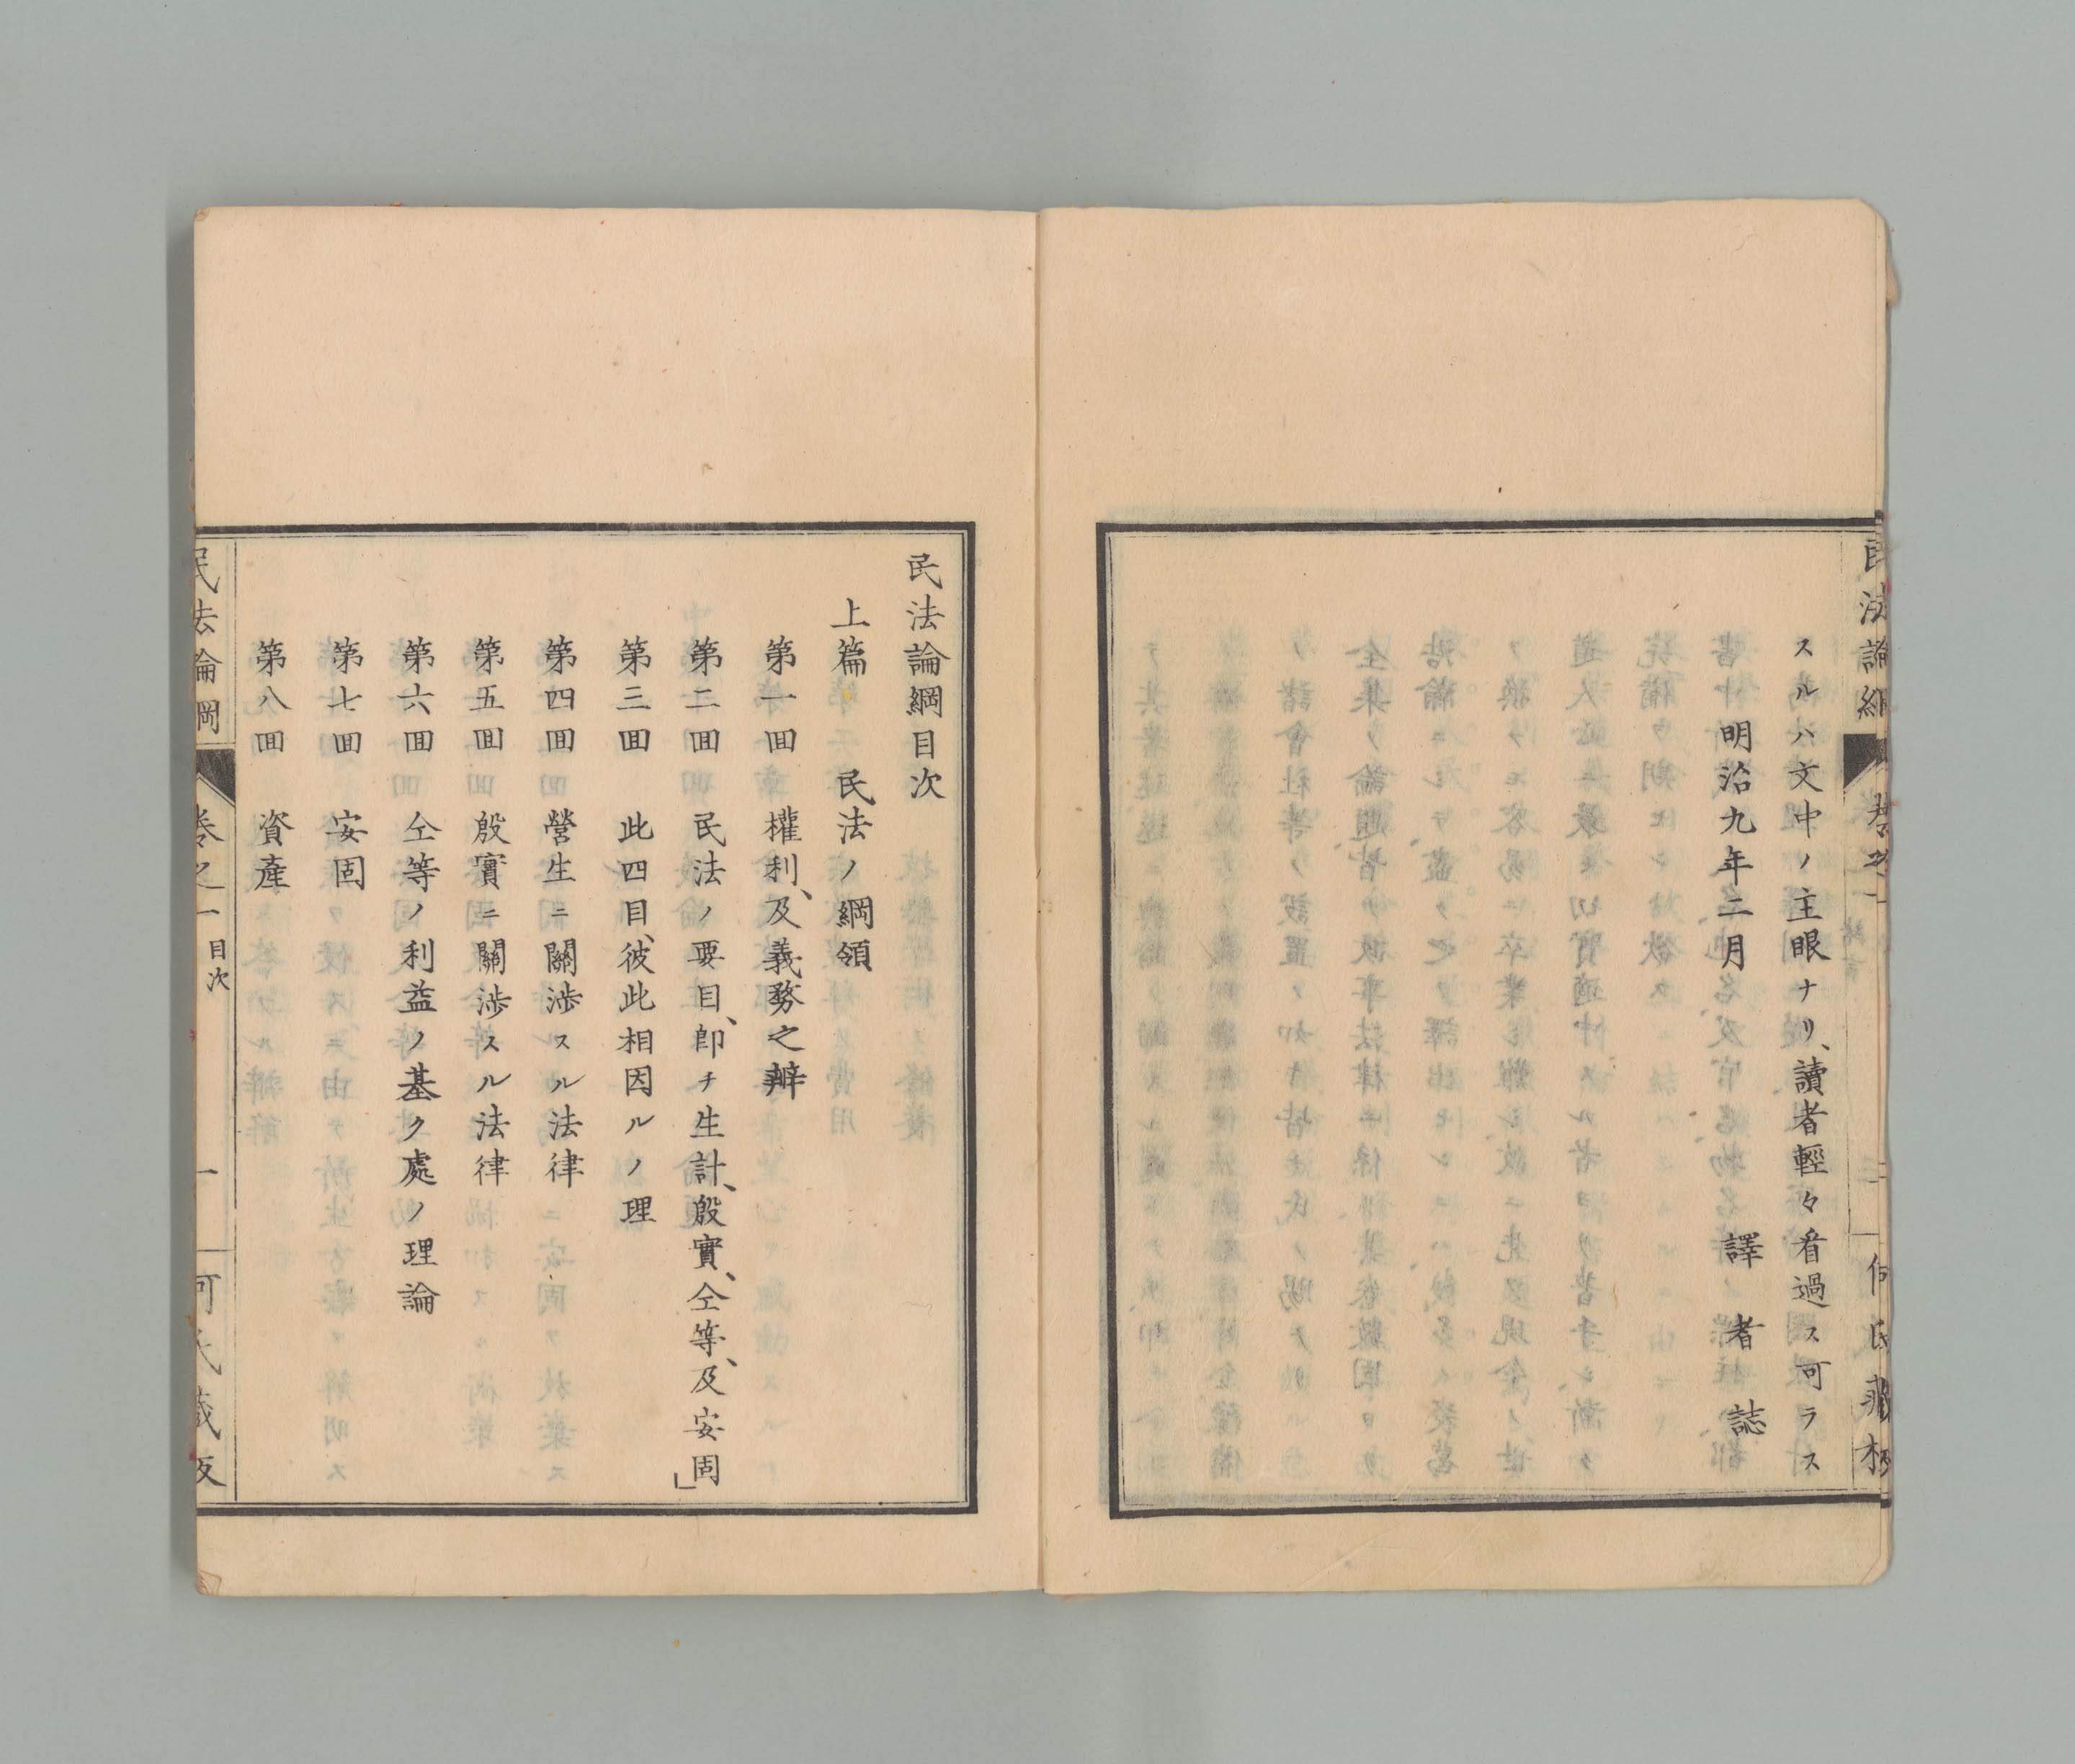 民法論綱
卷之一
スルハ文中ノ主眼ナリ、讀者輕々看過ス可ラス
明治九年二月
譯者誌
民法論綱目次
上篇 民法ノ綱領
第一囬 權利、及義務之辨
第二囬 民法ノ要目、卽チ生計、殷實、仝等、及安固
第三囬 此四目、彼此相因ルノ理
第四囬 營生ニ關渉スル法律
第五囬 殷實ニ關渉スル法律
第六囬 仝等ノ利益ノ基ク處ノ理論
第七囬 安固
第八囬 資產
民法論綱
卷之一 目次
一
何氏藏版